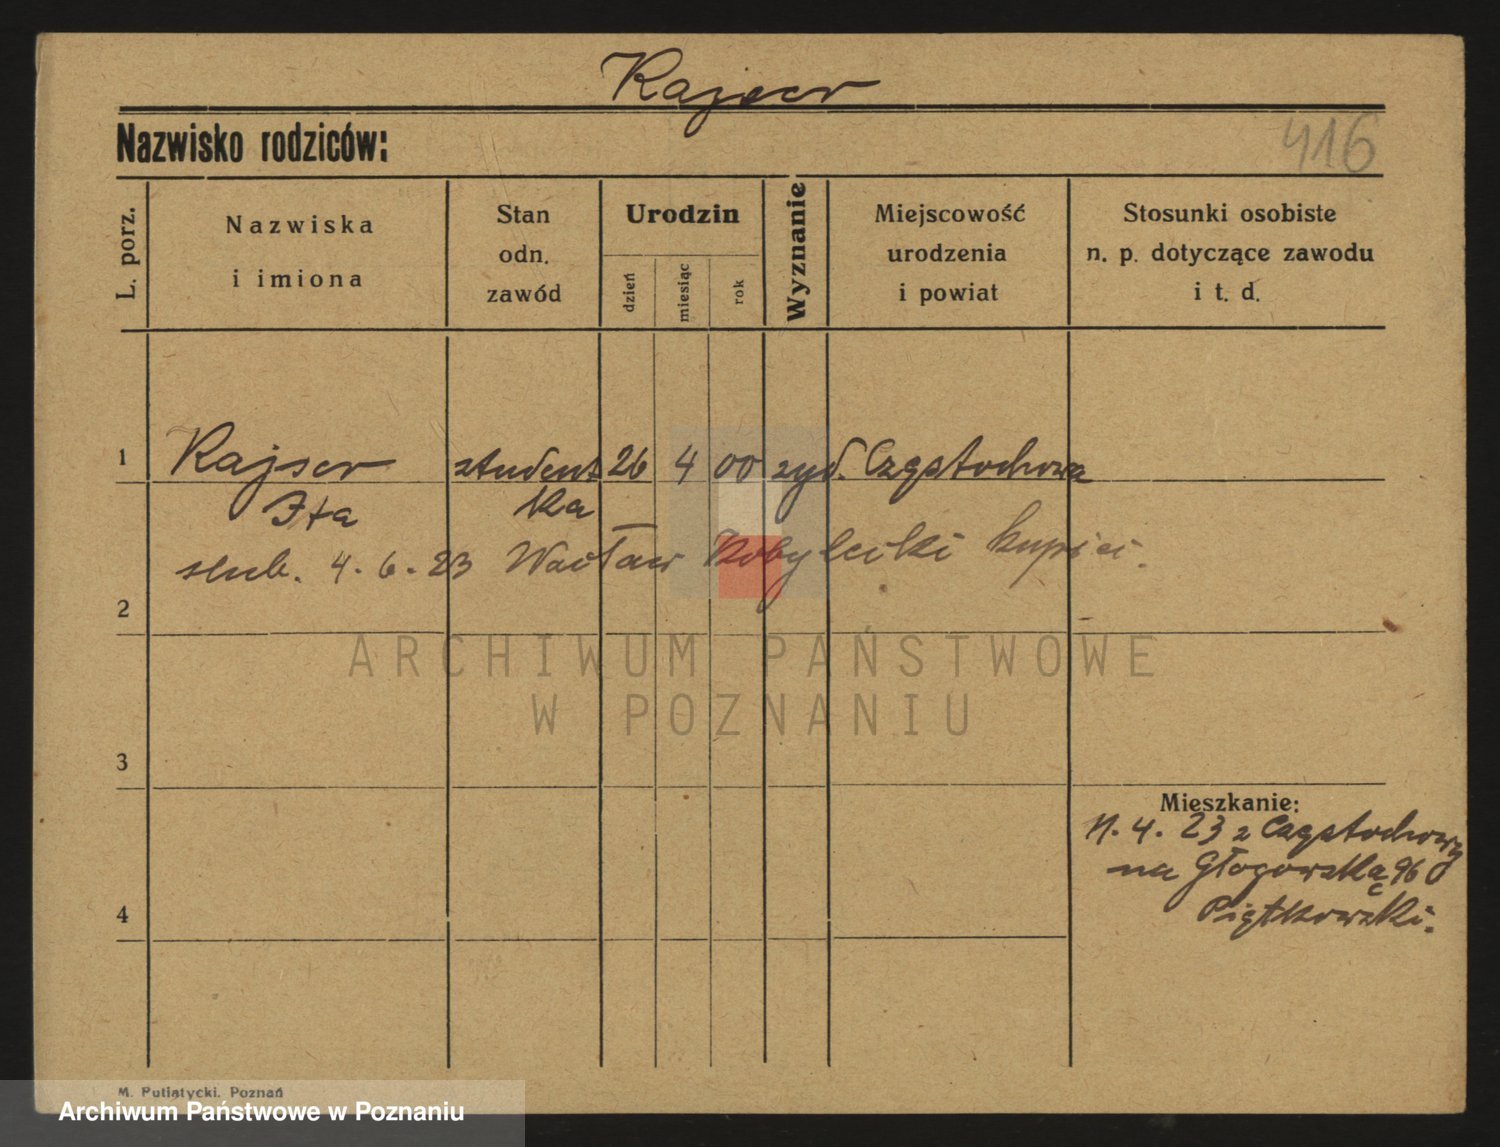 Kajser
Nazwisko rodziców:
416
L. porz.
Nazwiska
i imiona
Stan
odn.
zawód
Urodzin
dzień
miesiąc
rok
Wyznanie
Miejscowość
urodzenia
i powiat
Stosunki osobiste
n. p. dotyczące zawodu
i t. d.
1 Kajser student 26 4 00 żyd. Częstochowa
Ita ka
ślub. 4.6.23 Wacław Kobylecki kupiec.
2
ARCHIWUM PAŃSTWOWE
W POZNANIU
3
Mieszkanie:
4. 23 z Częstochowy
na Głogowską 96
Piątkowski.
4
M. Putiatycki. Poznań
Archiwum Państwowe w Poznaniu